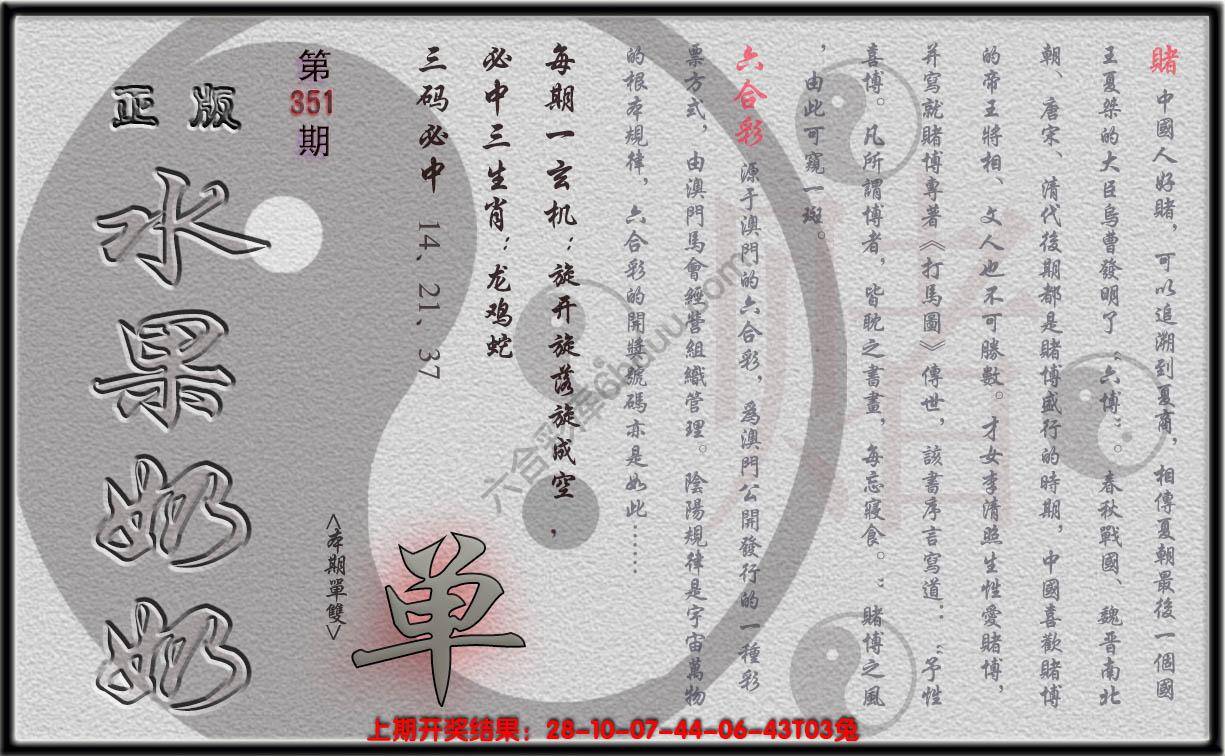 賭 中國人好賭，可以追溯到夏商，相傳夏朝最後一個國
王夏桀的大臣烏曹發明了“六博”。春秋戰國、魏晋南北
朝、唐宋、清代後期都是賭博盛行的時期，中國喜歡賭博
的帝王將相、文人也不可勝數。才女李清照生性愛賭博，
并寫就賭博專著《打馬圖》傳世，該書序言寫道：“予性
喜博。凡所謂博者，皆耽之書畫，每忘寢食。”賭博之風
，由此可窺一斑。
六合彩 源于澳門的六合彩，爲澳門公開發行的一種彩
票方式，由澳門馬會經營組織管理。陰陽規律是宇宙萬物
的根本規律，六合彩的開獎號碼亦是如此……
每期一玄机：旋开旋落旋成空，
必中三生肖：龙鸡蛇
三码必中 14. 21. 37
第351期
正版
水果奶奶
<本期單雙>
单
賭
六合彩库6huuu.com
上期开奖结果：28-10-07-44-06-43T03兔